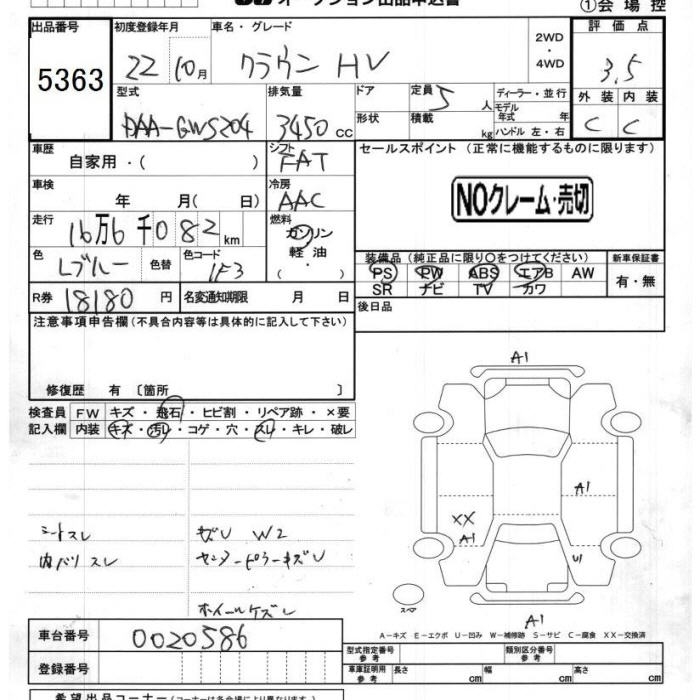 ①会場控
出品番号
5363
初度登録年月
22 10月
車名・グレード
クラウン HV
2WD
・
4WD
評価点
3.5
外装 内装
C C
型式
DAA-GWS204
排気量
3450 CC
ドア
形状
定員 5 人
積載 kg
ディーラー・並行
モデル年式 年
ハンドル 左・右
車歴
自家用・( )
シフト
FAT
セールスポイント (正常に機能するものに限ります)
NOクレーム・売切
車検
年 月( 日)
冷房
AAC
走行
16万6千082km
燃料
ガソリン
軽油
( ・ )
色
Lブルー
色替
色コード
1F3
装備品(純正品に限り〇をつけてください)
PS PW ABS エアB AW
SR ナビ TV カワ
新車保証書
有・無
R券 18180円
名変通知期限 月 日
後日品
注意事項申告欄(不具合内容等は具体的に記入して下さい)
修復歴 有〔箇所 〕
検査員記入欄
FW キズ・飛石・ヒビ割・リペア跡・×要
内装 キズ・汚レ・コゲ・穴・スレ・キレ・破レ
シートスレ
内バリスレ
W2
ホイールケズレ
A1
A1
XX
A1
U1
スペア
A1
A-キズ E-エクボ U-凹み W-補修跡 S-サビ C-腐食 XX-交換済
車台番号
0020586
登録番号
型式指定番号参考
類別区分番号参考
車庫証明用参考 長さ cm 幅 cm 高さ cm
希望出品コーナー(コーナーは各会場により異なります)